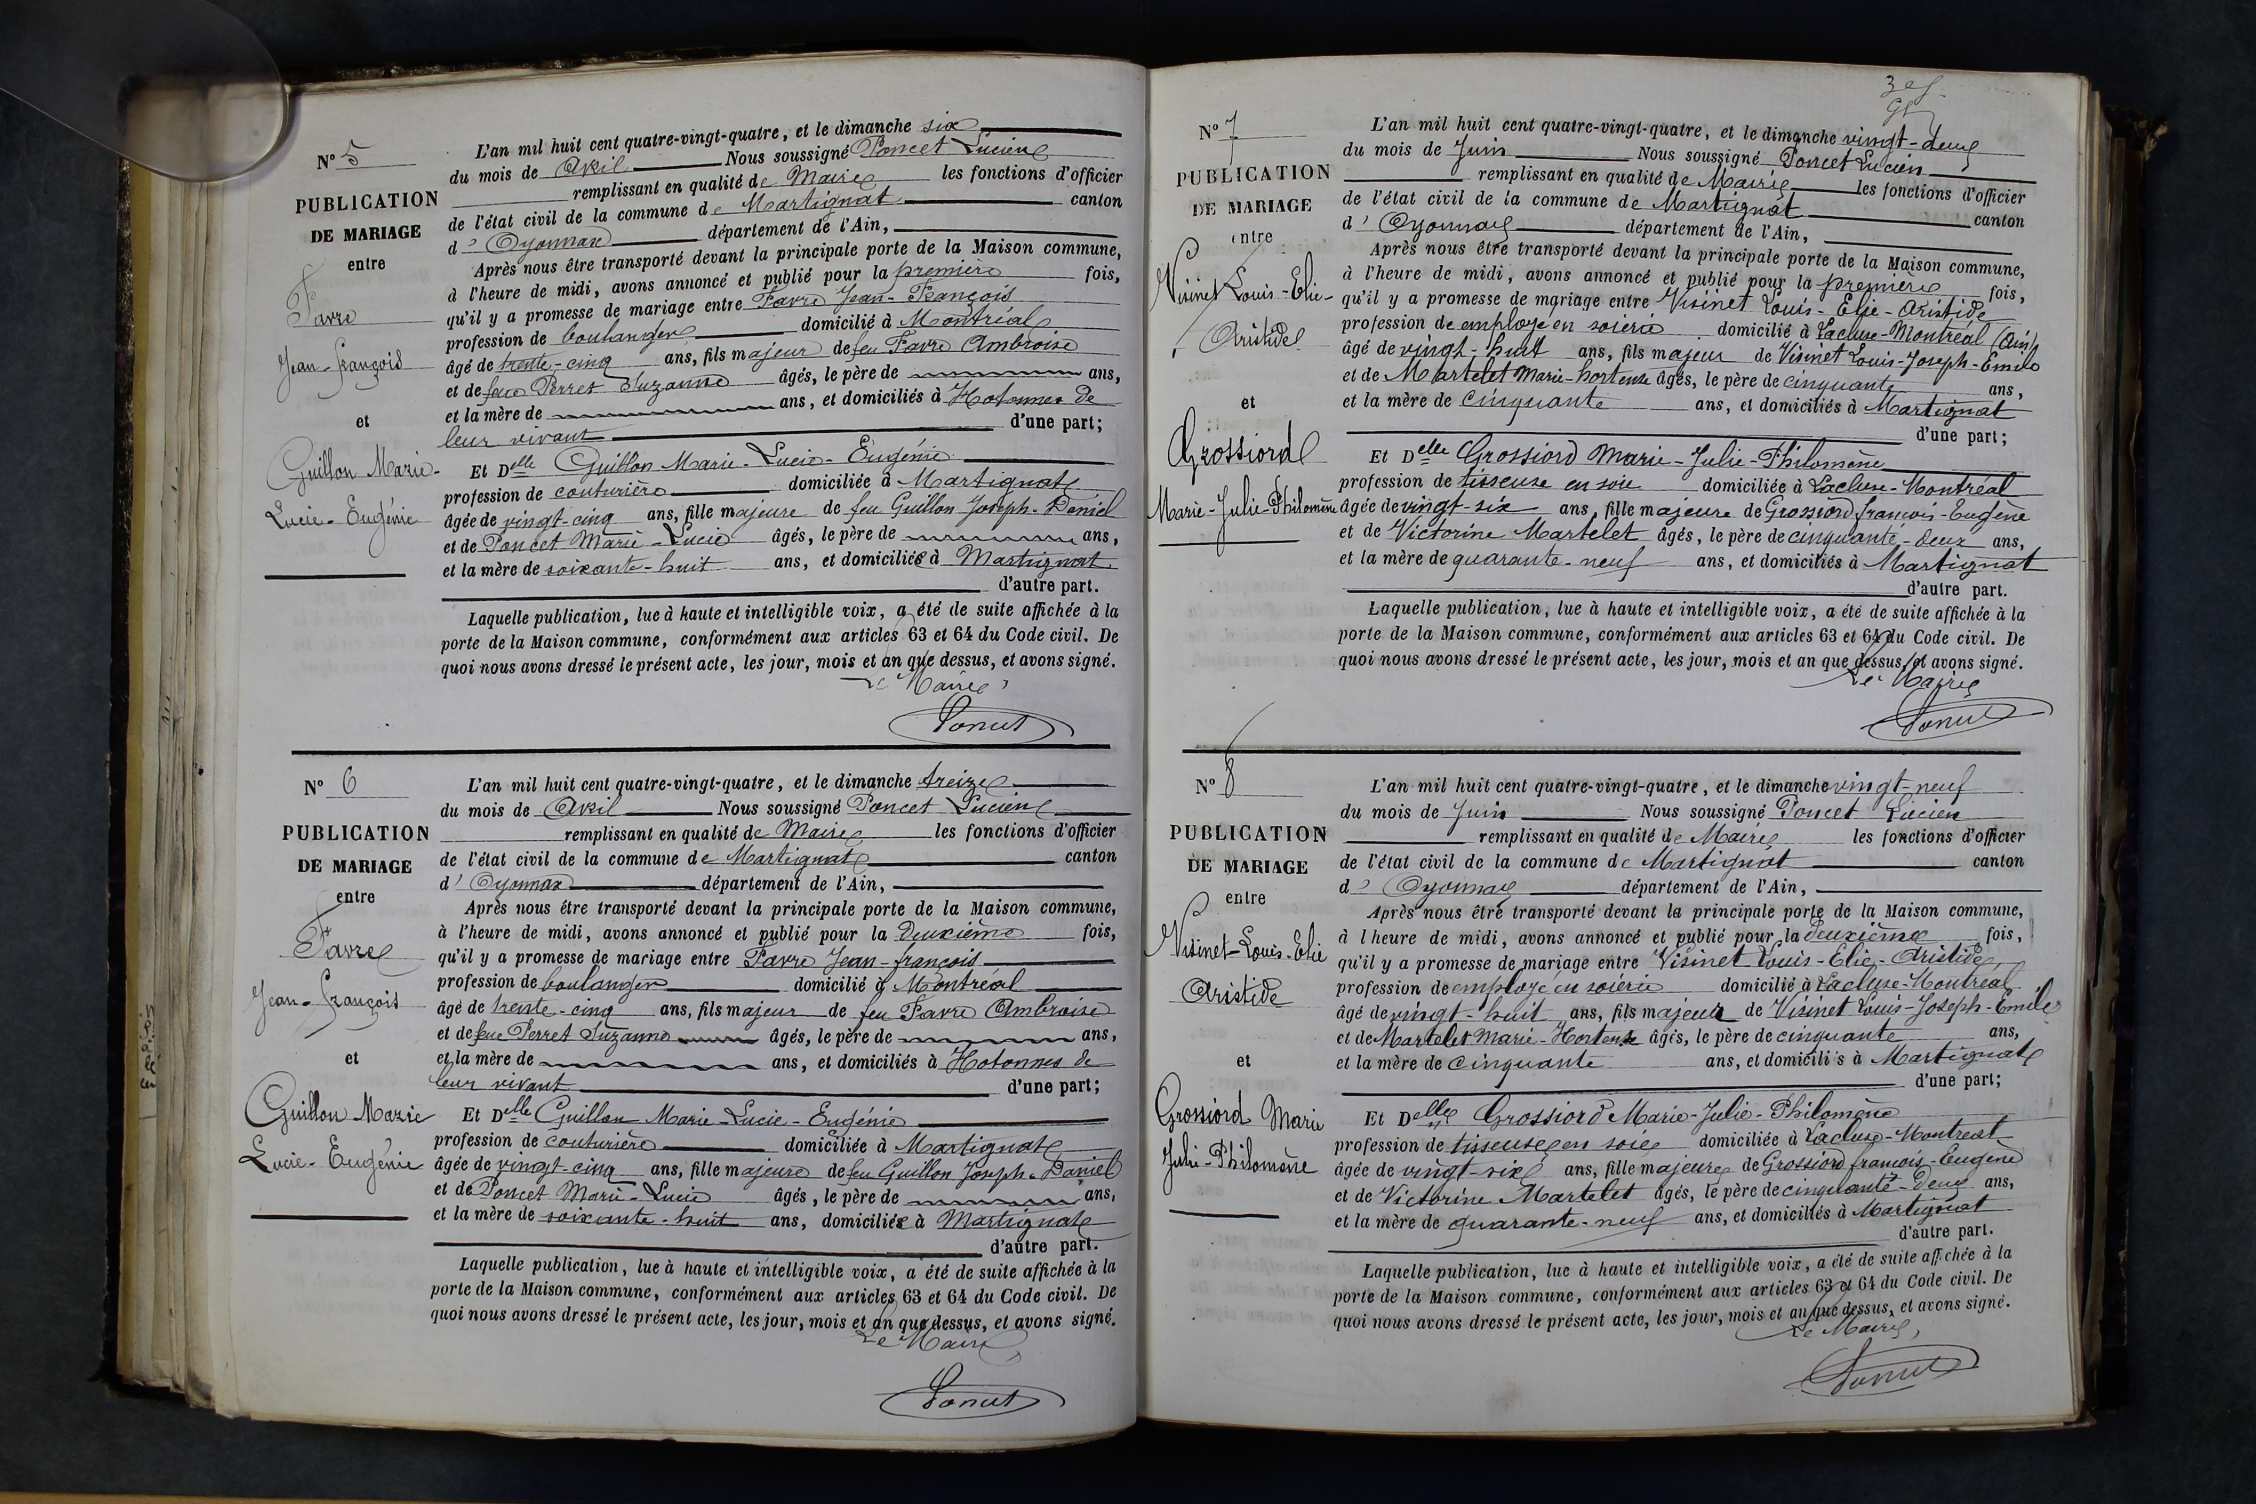 N° 5
PUBLICATION
DE MARIAGE
entre
Favre
Jean-François
et
Guillon Marie-
Lucie-Eugénie
L'an mil huit cent quatre-vingt-quatre, et le dimanche six
du mois de Avril Nous soussigné Poncet Lucien
remplissant en qualité de Maire les fonctions d'officier
de l'état civil de la commune de Martignat canton
d' Oyonnax département de l'Ain,
Après nous être transporté devant la principale porte de la Maison commune,
à l'heure de midi, avons annoncé et publié pour la première fois,
qu'il y a promesse de mariage entre Favre Jean-François
profession de boulanger domicilié à Montréal
âgé de trente-cinq ans, fils majeur de feu Favre Ambroise
et de feue Perret Suzanne âgés, le père de ans,
et la mère de ans, et domiciliés à Hotonnes de
leur vivant d'une part;
Et Delle Guillon Marie-Lucie-Eugénie
profession de couturière domiciliée à Martignat
âgée de vingt-cinq ans, fille majeure de feu Guillon Joseph-Daniel
et de Poncet Marie-Lucie âgés, le père de ans,
et la mère de soixante-huit ans, et domiciliée à Martignat
d'autre part.
Laquelle publication, lue à haute et intelligible voix, a été de suite affichée à la
porte de la Maison commune, conformément aux articles 63 et 64 du Code civil. De
quoi nous avons dressé le présent acte, les jour, mois et an que dessus, et avons signé.
Le Maire
Poncet
N° 6
PUBLICATION
DE MARIAGE
entre
Favre
Jean-François
et
Guillon Marie
Lucie-Eugénie
L'an mil huit cent quatre-vingt-quatre, et le dimanche treize
du mois de Avril Nous soussigné Poncet Lucien
remplissant en qualité de Maire les fonctions d'officier
de l'état civil de la commune de Martignat canton
d' Oyonnax département de l'Ain,
Après nous être transporté devant la principale porte de la Maison commune,
à l'heure de midi, avons annoncé et publié pour la deuxième fois,
qu'il y a promesse de mariage entre Favre Jean-françois
profession de boulanger domicilié à Montréal
âgé de trente-cinq ans, fils majeur de feu Favre Ambroise
et de feue Perret Suzanne âgés, le père de ans,
et la mère de ans, et domiciliés à Hotonnes de
leur vivant d'une part;
Et Delle Guillon Marie-Lucie-Eugénie
profession de couturière domiciliée à Martignat
âgée de vingt-cinq ans, fille majeure de feu Guillon Joseph-Daniel
et de Poncet Marie-Lucie âgés, le père de ans,
et la mère de soixante-huit ans, domiciliée à Martignat
d'autre part.
Laquelle publication, lue à haute et intelligible voix, a été de suite affichée à la
porte de la Maison commune, conformément aux articles 63 et 64 du Code civil. De
quoi nous avons dressé le présent acte, les jour, mois et an que dessus, et avons signé.
Le Maire
Poncet
N° 7
PUBLICATION
DE MARIAGE
entre
Visinet Louis-Elie-
Aristide
et
Grossiord
Marie-Julie-Philomène
L'an mil huit cent quatre-vingt-quatre, et le dimanche vingt-deux
du mois de Juin Nous soussigné Poncet Lucien
remplissant en qualité de Maire les fonctions d'officier
de l'état civil de la commune de Martignat canton
d' Oyonnax département de l'Ain,
Après nous être transporté devant la principale porte de la Maison commune,
à l'heure de midi, avons annoncé et publié pour la première fois,
qu'il y a promesse de mariage entre Visinet Louis-Elie-Aristide
profession de employé en soierie domicilié à Lacluse-Montréal (Ain)
âgé de vingt-huit ans, fils majeur de Visinet Louis-Joseph-Emile
et de Martelet Marie-hortense âgés, le père de cinquante ans,
et la mère de cinquante ans, et domiciliés à Martignat
d'une part;
Et Delle Grossiord Marie-Julie-Philomène
profession de tisseuse en soie domiciliée à Lacluse-Montréal
âgée de vingt-six ans, fille majeure de Grossiord françois-Eugène
et de Victorine Martelet âgés, le père de cinquante-deux ans,
et la mère de quarante-neuf ans, et domiciliés à Martignat
d'autre part.
Laquelle publication, lue à haute et intelligible voix, a été de suite affichée à la
porte de la Maison commune, conformément aux articles 63 et 64 du Code civil. De
quoi nous avons dressé le présent acte, les jour, mois et an que dessus, et avons signé.
Le Maire
Poncet
N° 8
PUBLICATION
DE MARIAGE
entre
Visinet-Louis-Elie
Aristide
et
Grossiord Marie
Julie-Philomène
L'an mil huit cent quatre-vingt-quatre, et le dimanche vingt-neuf
du mois de Juin Nous soussigné Poncet Lucien
remplissant en qualité de Maire les fonctions d'officier
de l'état civil de la commune de Martignat canton
d' Oyonnax département de l'Ain,
Après nous être transporté devant la principale porte de la Maison commune,
à l'heure de midi, avons annoncé et publié pour la deuxième fois,
qu'il y a promesse de mariage entre Visinet Louis-Elie-Aristide
profession de employé en soierie domicilié à Lacluse-Montréal
âgé de vingt-huit ans, fils majeur de Visinet Louis-Joseph-Emile
et de Martelet Marie-Hortense âgés, le père de cinquante ans,
et la mère de cinquante ans, et domiciliés à Martignat
d'une part;
Et Delle Grossiord Marie-Julie-Philomène
profession de tisseuse en soie domiciliée à Lacluse-Montréal
âgée de vingt-six ans, fille majeure de Grossiord françois-Eugène
et de Victorine Martelet âgés, le père de cinquante-deux ans,
et la mère de quarante-neuf ans, et domiciliés à Martignat
d'autre part.
Laquelle publication, lue à haute et intelligible voix, a été de suite affichée à la
porte de la Maison commune, conformément aux articles 63 et 64 du Code civil. De
quoi nous avons dressé le présent acte, les jour, mois et an que dessus, et avons signé.
Le Maire,
Poncet